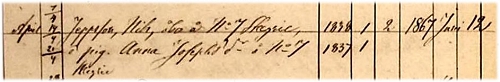 7
April 14 Jeppsson, Nils, åbo å No 7 Skegrie 1838 1 2 1867 Juni 12
9
21 o pig. Anna Josephsdr å No 7 1837 1
4 Skegrie